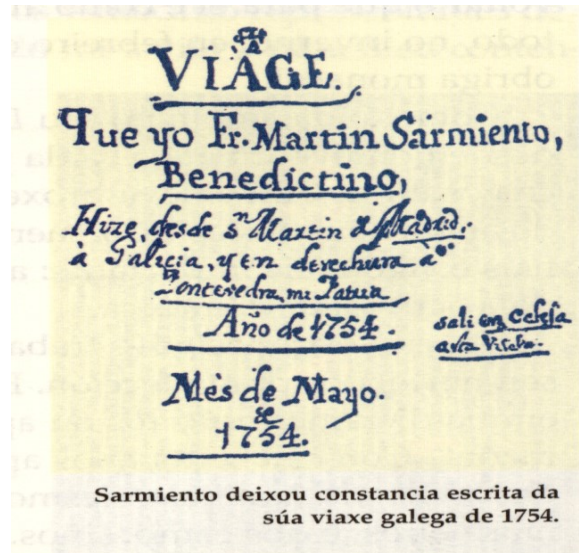 VIAGE.
Que yo Fr. Martin Sarmiento,
Benedictino,
Hize, desde Sn Martin de Madrid.
à Galicia, y en derechura a
Pontevedra, mi Patria
Año de 1754.
sali en
Mès de Mayo.
de
1754.
Sarmiento deixou constancia escrita da
súa viaxe galega de 1754.